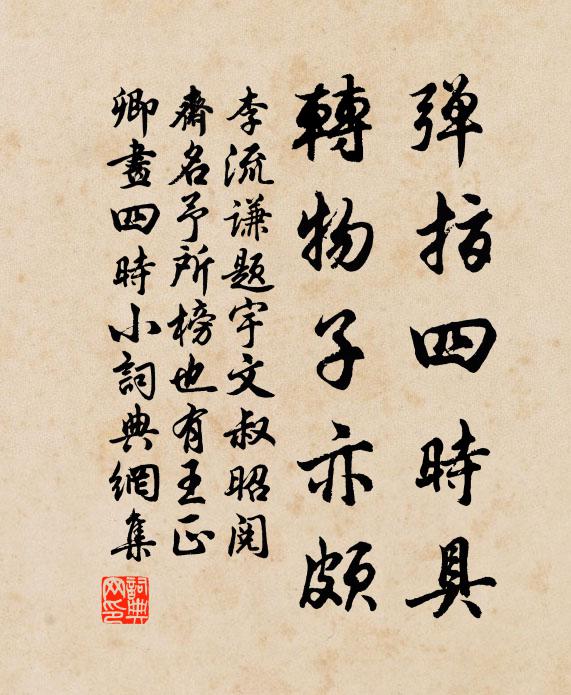 弹指四時具
轉物子亦頗
李流谦题宇文叔昭阅
齋名予所榜也有王正
卿畫四時小詞典網集
詞典網印